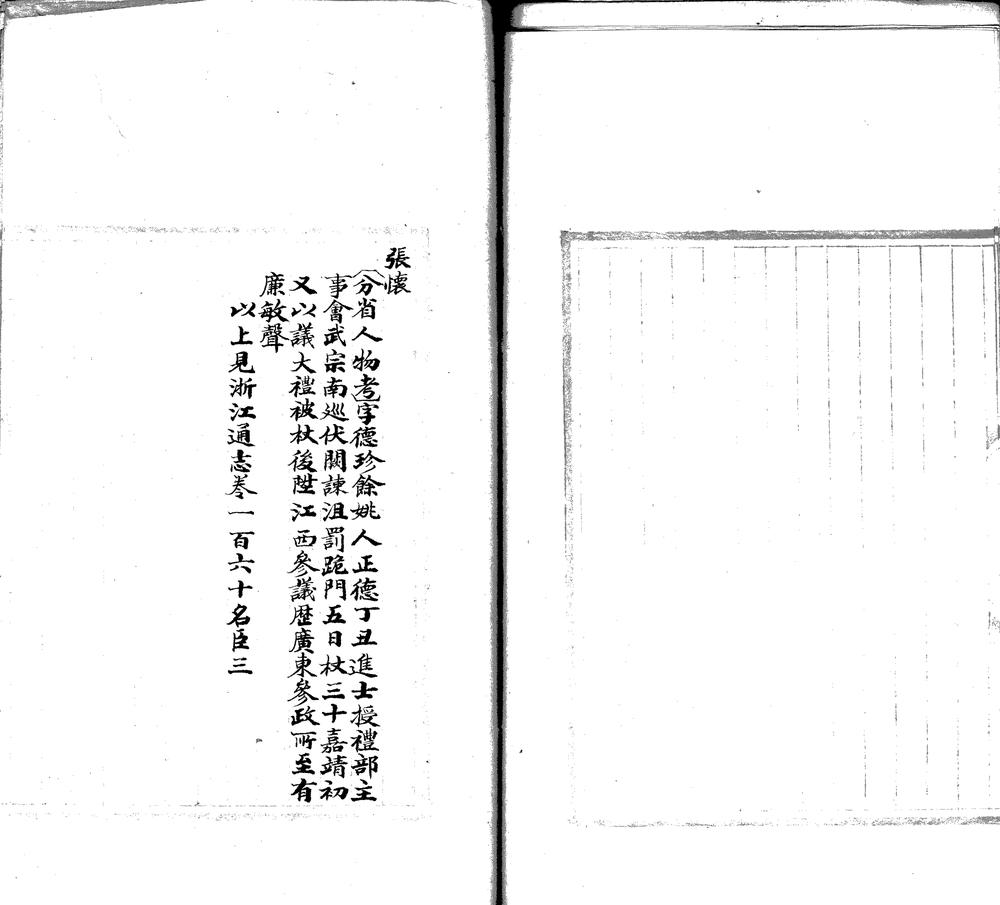 張懷
分省人物考字德珍餘姚人正德丁丑進士授禮部主
事會武宗南巡伏闕諫沮罰跪門五日杖三十嘉靖初
又以議大禮被杖後陞江西參議歷廣東參政所至有
廉敏聲
以上見浙江通志卷一百六十名臣三